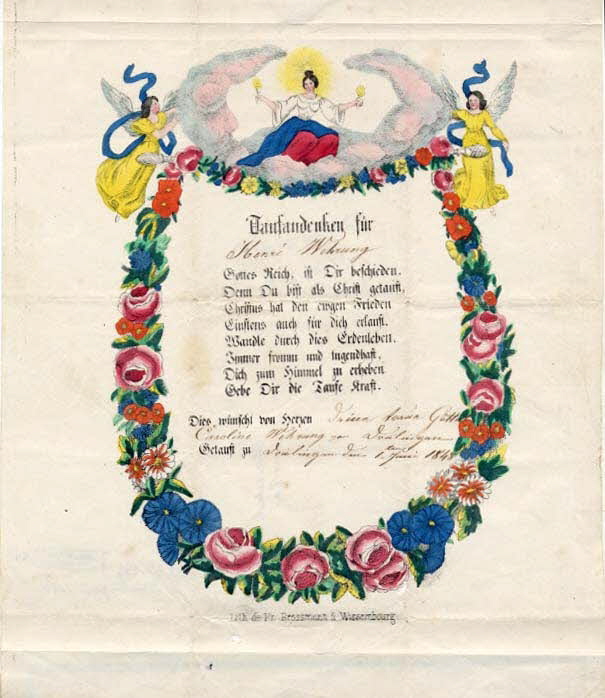 Taufandenken für
Henri Wehrung
Gottes Reich, ist Dir beschieden.
Denn Du bist als Christ getauft,
Christus hat den ewgen Frieden
Einstens auch für dich erkauft.
Wandle durch dies Erdenleben.
Immer fromm und tugendhaft,
Dich zum Himmel zu erheben
Gebe Dir die Taufe Kraft.
Dies, wünscht von Herzen
Caroline Wehrung
Getauft zu den
Lith. de Fr. Brossmann à Wissembourg